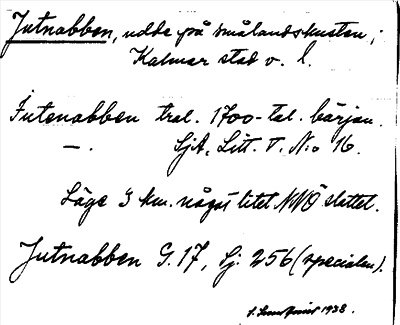 Jutnabben, udde på smålandskusten;
Kalmar stad o. l.
Jutenabben tral. 1700-tal. början.
—. SjA, Litt. T. N:o 16.
Läge 3 km. något litet NNÖ slottet.
Jutnabben G. 17, Sj. 256 (specialen).
1938.